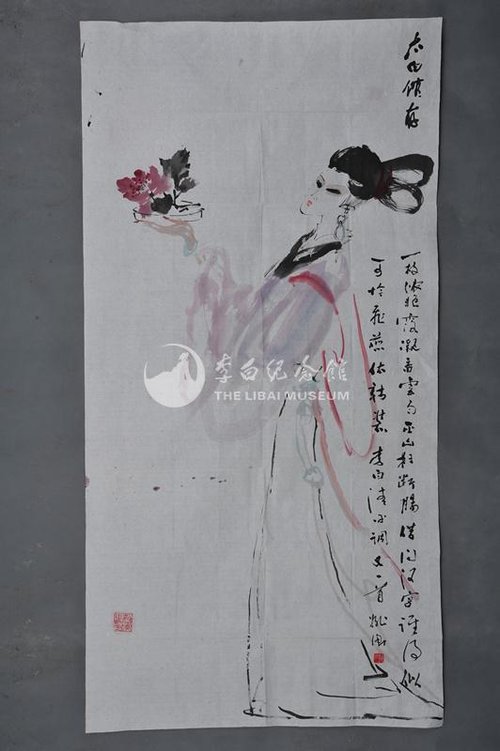 太白
一枝浓艳露凝香雲雨巫山枉断腸借问汉宫谁得似
可怜飛燕依新装 李白清平调又一首
李白纪念館
THE LIBAI MUSEUM